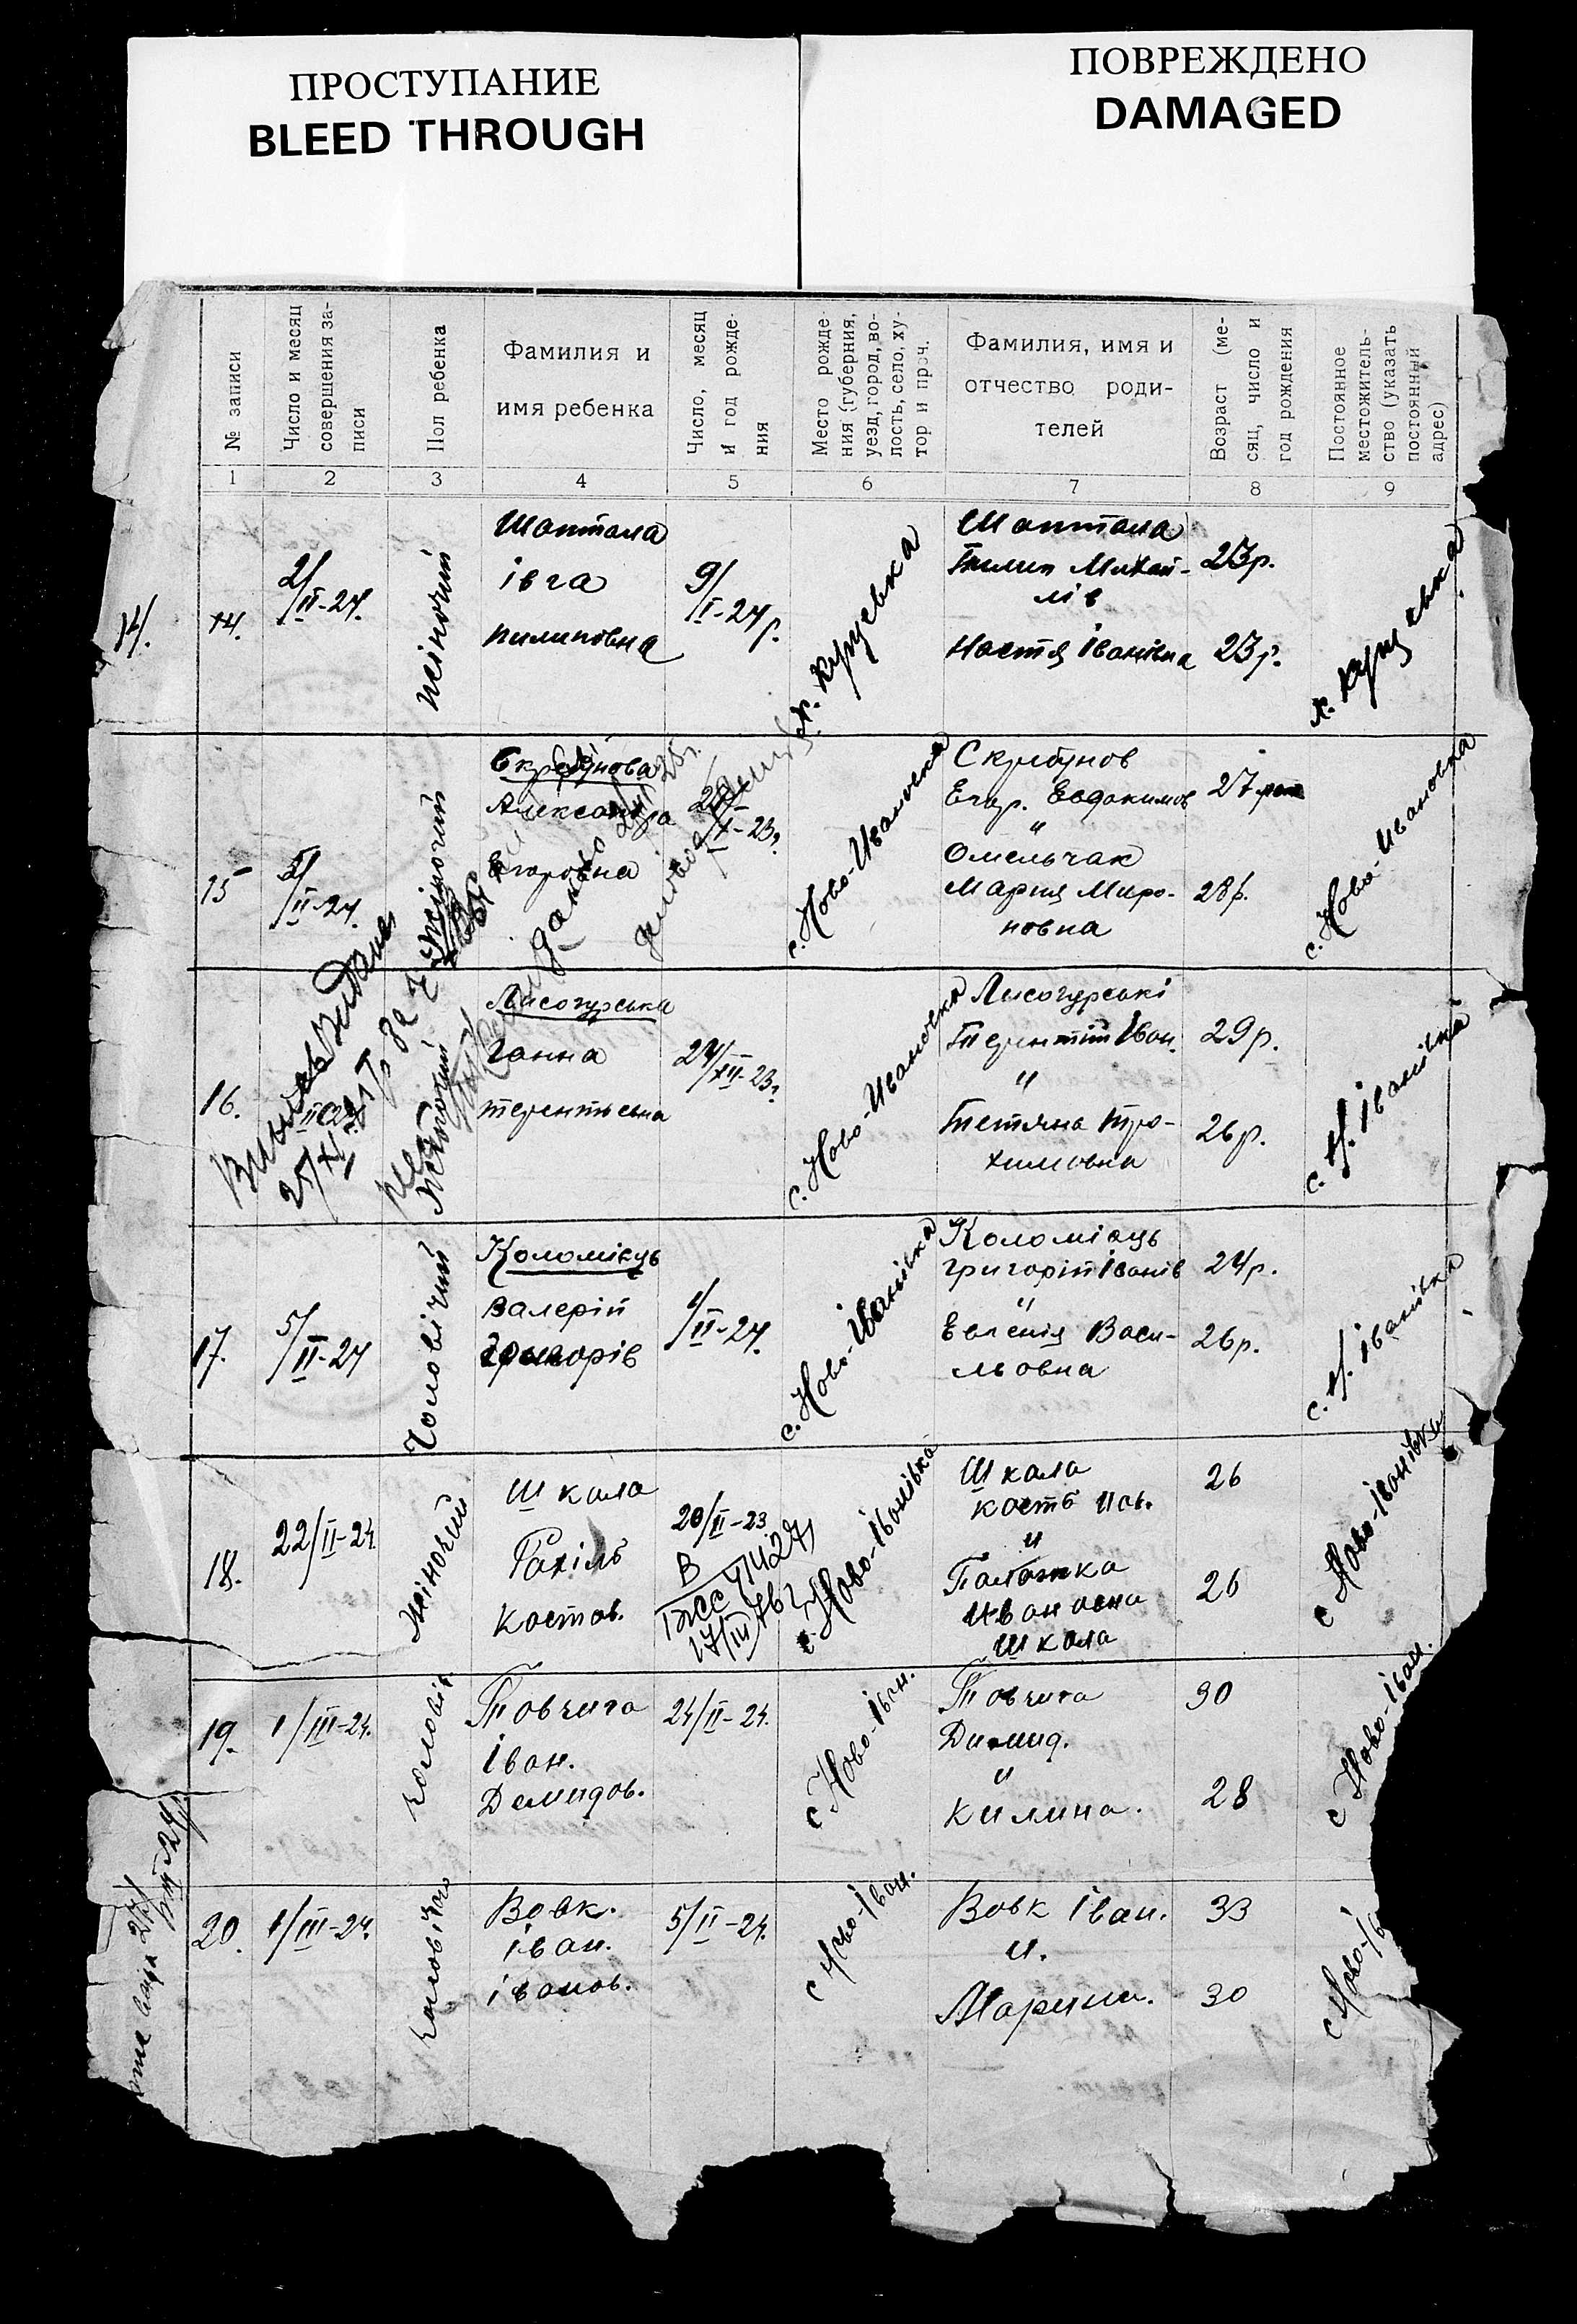 ПРОСТУПАНИЕ
BLEED THROUGH
ПОВРЕЖДЕНО
DAMAGED
№ записи
Число и месяц
совершения за-
писи
Пол ребенка
Фамилия и
имя ребенка
Число, месяц
и год рожде-
ния
Место рожде-
ния (губерния,
уезд, город, во-
лость, село, ху-
тор и проч.
Фамилия, имя и
отчество роди-
телей
Возраст (ме-
сяц, число и
год рождения
Постоянное
местожитель-
ство (указать
постоянный
адрес)
1 2 3 4 5 6 7 8 9
14.
14.
2/II-24.
жіночий
Шаптала
івга
пилиповна
9/I-24 р.
Шаптала
Пилип Михай-
лів
Настя Іванівна
23р.
23р.
15
5/II-24.
жіночий
Александра
Егоровна
с. Ново-Ивановка
Скрибунов
Егор. Евдокимов
"
Омельчак
Мария Миро-
новна
27
28р.
с. Ново-Ивановка
16.
жіночий
Лисогурська
Ганна
терентьевна
24/XII-23г.
с. Ново-Ивановка
Лисогурські
Терентій Іван.
"
Тетяна Тро-
химовна
29р.
26р.
с. Н. Іванівка
17.
5/II-24
Чоловічий
Коломієць
Валерій
Григорів
1/II-24.
с. Ново-Іванівка
Коломієць
Григорій Іванів
"
Евгенія Васи-
льовна
24р.
26р.
с. Н. Іванівка
18.
22/II-24.
Жіночий
Шкала
Рахіль
Костов.
20/II-23
с Ново-Іванівка
Шкала
Кость
"
Ивановна
Шкала
26
26
с Ново-Іванівка
19.
1/III-24.
чоловік
Товчига
Іван.
Демидов.
24/II-24.
с Ново-Іван.
Товчига
Димид.
"
Килина.
30
28
с Ново-Іван.
20.
1/III-24.
чоловічого
Вовк.
іван.
іванов.
5/II-24.
с Ново-Іван.
Вовк Іван.
"
Марина.
33
30
с Ново-Ів